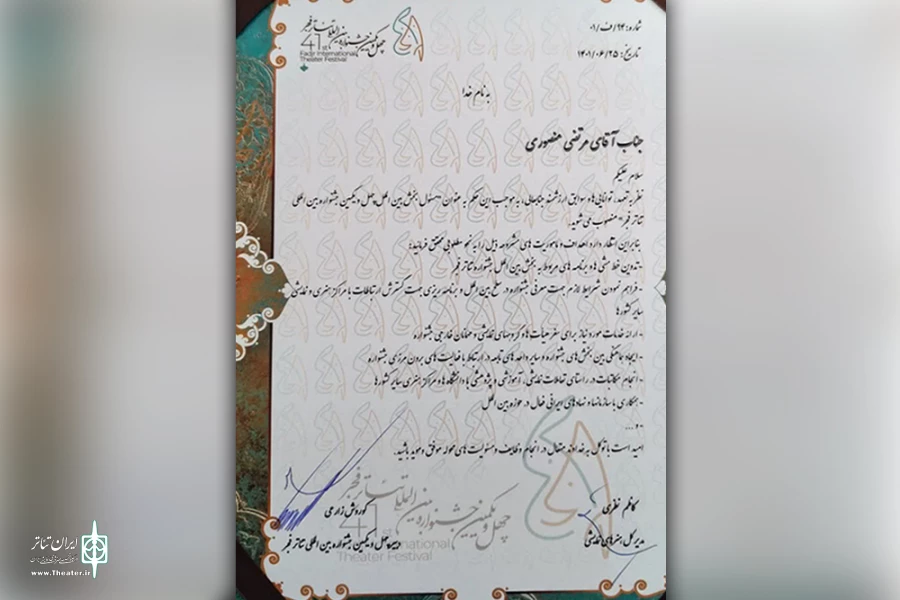 شماره: ۹۴/ف/۰۱
تاریخ: ۱۴۰۱/۰۶/۲۵
چهل و یکمین جشنواره بین‌المللی تئاتر فجر
41st
Fadjr International
Theater Festival
به نام خدا
جناب آقای مرتضی منصوری
سلام علیکم
نظر به تعهد، توانایی‌ها و سوابق ارزشمند جنابعالی، به موجب این حکم به عنوان «مسئول بخش بین الملل چهل و یکمین جشنواره بین المللی
تئاتر فجر» منصوب می‌شوید.
بنابراین انتظار دارد اهداف و ماموریت های مشروحه ذیل را به نحو مطلوبی محقق فرمائید:
-تدوین خط مشی ها و برنامه های مربوط به بخش بین الملل جشنواره تئاتر فجر
-فراهم نمودن شرایط لازم جهت معرفی جشنواره در سطح بین الملل و برنامه ریزی جهت گسترش ارتباطات با مراکز هنری و نمایشی
سایر کشورها
- ارائه خدمات مورد نیاز برای سفر هیات ها و گروههای نمایشی و مهمانان خارجی جشنواره
- ایجاد هماهنگی بین بخش های جشنواره و سایر واحد های تابعه در ارتباط با فعالیت های برون مرزی جشنواره
- انجام مکاتبات در راستای تعاملات نمایشی، آموزشی و پژوهشی با دانشگاه ها و مراکز هنری سایر کشورها
- همکاری با سازمانها و نهادهای ایرانی فعال در حوزه بین الملل
- و ...
امید است با توکل به خداوند متعال در انجام وظایف و مسئولیت های محوله موفق و موید باشید.
کاظم نظری
مدیرکل هنرهای نمایشی
کوروش زارعی
دبیر چهل و یکمین جشنواره بین المللی تئاتر فجر
چهل و یکمین جشنواره بین‌المللی تئاتر فجر
41
International
Theater Festival
ایران تئاتر
www.Theater.ir